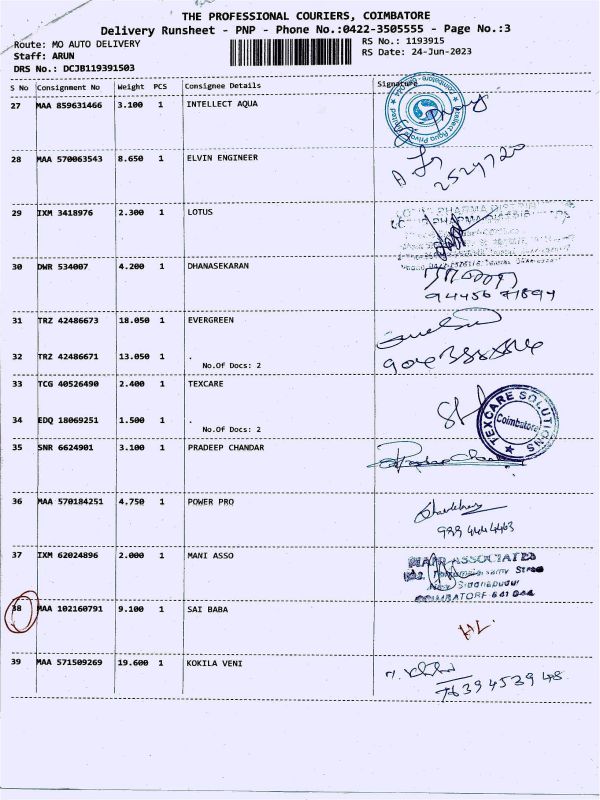 THE PROFESSIONAL COURIERS, COIMBATORE
Delivery Runsheet - PNP - Phone No.:0422-3505555 - Page No.:3
Route: MO AUTO DELIVERY
RS No.: 1193915
Staff: ARUN
RS Date: 24-Jun-2023
DRS No.: DCJB119391503
S No Consignment No Weight PCS Consignee Details Signature
27 MAA 859631466 3.100 1 INTELLECT AQUA
28 MAA 570063543 8.650 1 ELVIN ENGINEER
2529720
29 IXM 3418976 2.300 1 LOTUS
30 DWR 534007 4.200 1 DHANASEKARAN
94456 71894
31 TRZ 42486673 18.050 1 EVERGREEN
32 TRZ 42486671 13.050 1 .
No.Of Docs: 2
33 TCG 40526490 2.400 1 TEXCARE
TEXCARE SOLUTIONS
Coimbatore
34 EDQ 18069251 1.500 1 .
No.Of Docs: 2
35 SNR 6624901 3.100 1 PRADEEP CHANDAR
36 MAA 570184251 4.750 1 POWER PRO
37 IXM 62024896 2.000 1 MANI ASSO
ASSOCIATES
COIMBATORE 641 044
38 MAA 102160791 9.100 1 SAI BABA
39 MAA 571509269 19.600 1 KOKILA VENI
76394 53948